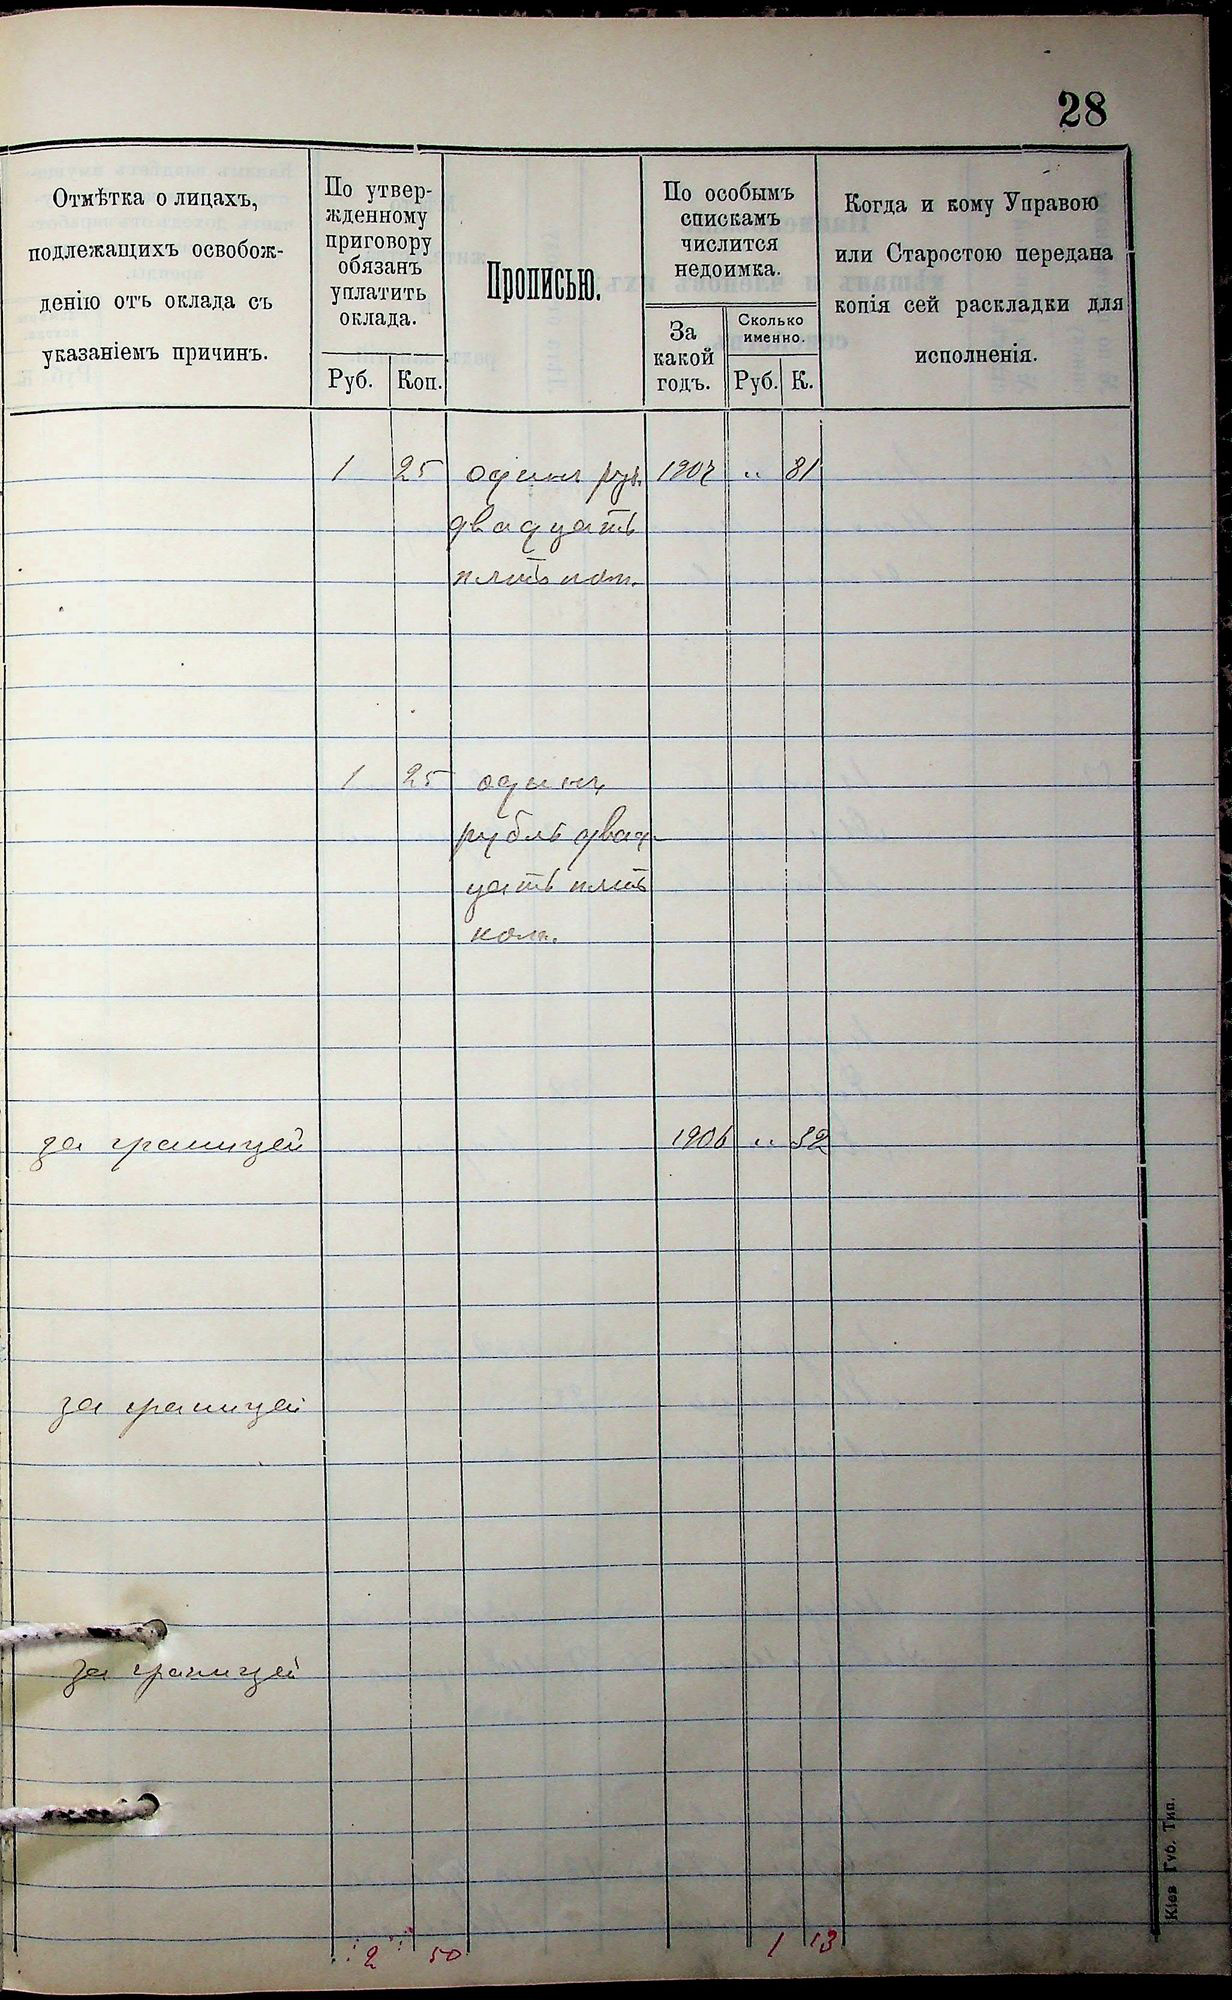 28
Отмѣтка о лицахъ,
подлежащихъ освобож-
денію отъ оклада съ
указаніемъ причинъ.
По утвер-
жденному
приговору
обязанъ
уплатить
оклада.
Руб. Коп.
Прописью.
По особымъ
спискамъ
числится
недоимка.
За
какой
годъ.
Сколько
именно.
Руб. К.
Когда и кому Управою
или Старостою передана
копія сей раскладки для
исполненія.
1 25 одинъ руб. 1907 " 81
двадцать
пять коп.
1 25 одинъ
рубль двад-
цать пять
коп.
за границей 1906 " 32
за границей
за границей
2 50 1 13
Кіев Губ. Тип.